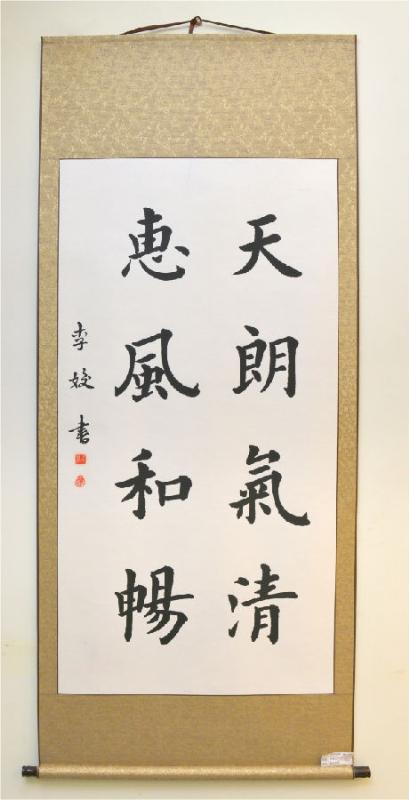 天朗氣清
恵風和暢
李姣書